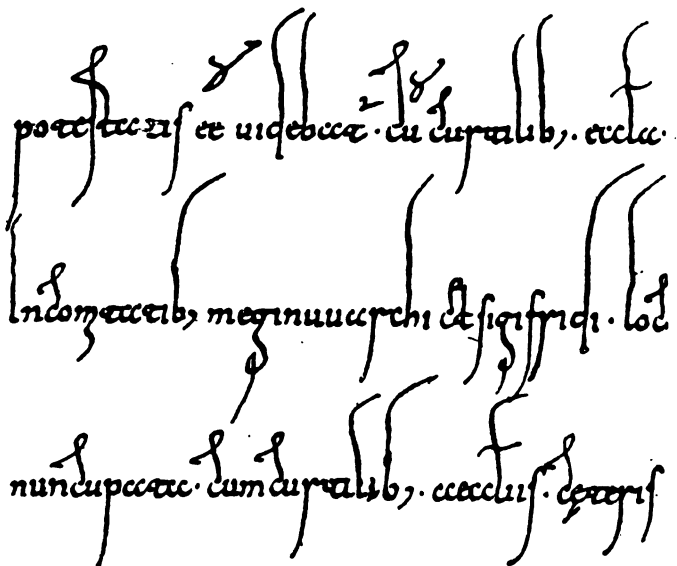 potestatis et uidebat · cu curtilib; · eccla ·
In comitatib; meginuuarchi et sigifridi · loc
nuncupata · cum curtilib; · aeccliis · cęteris